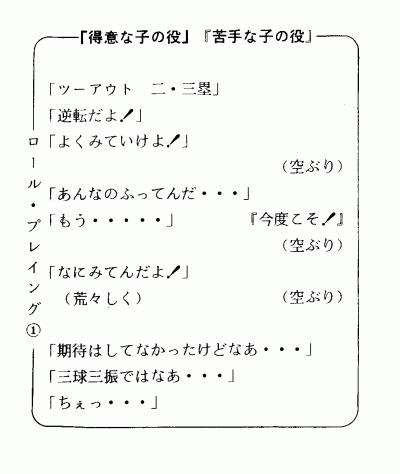 「得意な子の役」『苦手な子の役』
ロール・プレイング①
「ツーアウト　二・三塁」
「逆転だよ!」
「よくみていけよ!」
（空ぶり）
「あんなのふってんだ・・・」
「もう・・・・・」　『今度こそ!』
（空ぶり）
「なにみてんだよ!」
（荒々しく）　（空ぶり）
「期待はしてなかったけどなあ・・・」
「三球三振ではなあ・・・」
「ちぇっ・・・」